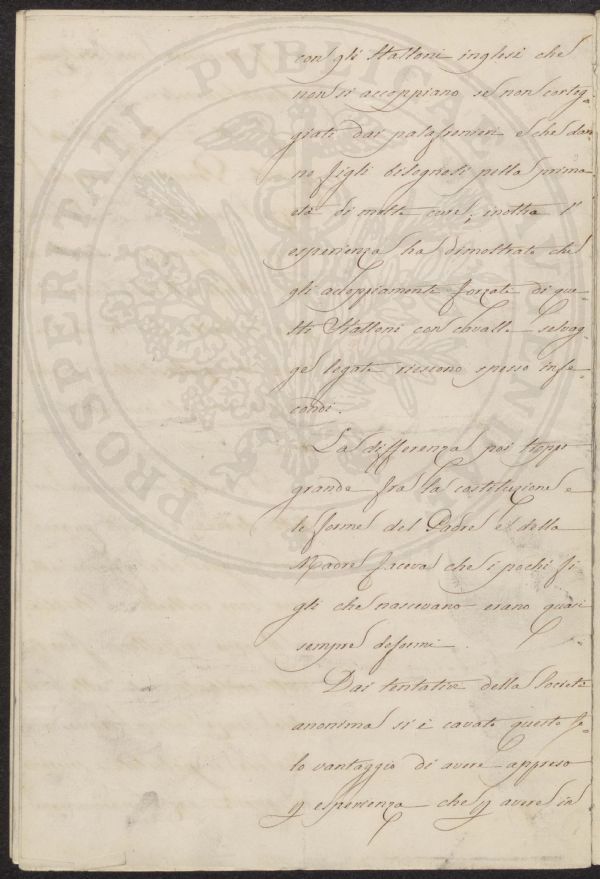 con gli Stalloni inglesi che
non si accoppiano se non corteg-
giati dai palafrenieri e che dan-
no figli bisognosi nella prima
età di molte cure; inoltre l'
esperienza ha dimostrato che
gli accoppiamenti forzati di que-
sti Stalloni con cavalle selvag-
ge legate riescono spesso infe-
condi.
La differenza poi troppo
grande fra la costituzione e
le forme del Padre e della
Madre faceva che i pochi fi-
gli che nascevano erano quasi
sempre deformi.
Dai tentativi della Società
anonima si è cavato questo so-
lo vantaggio di avere appreso
p esperienza che p avere in
PROSPERITATI PVBLICAE AVGENDAE